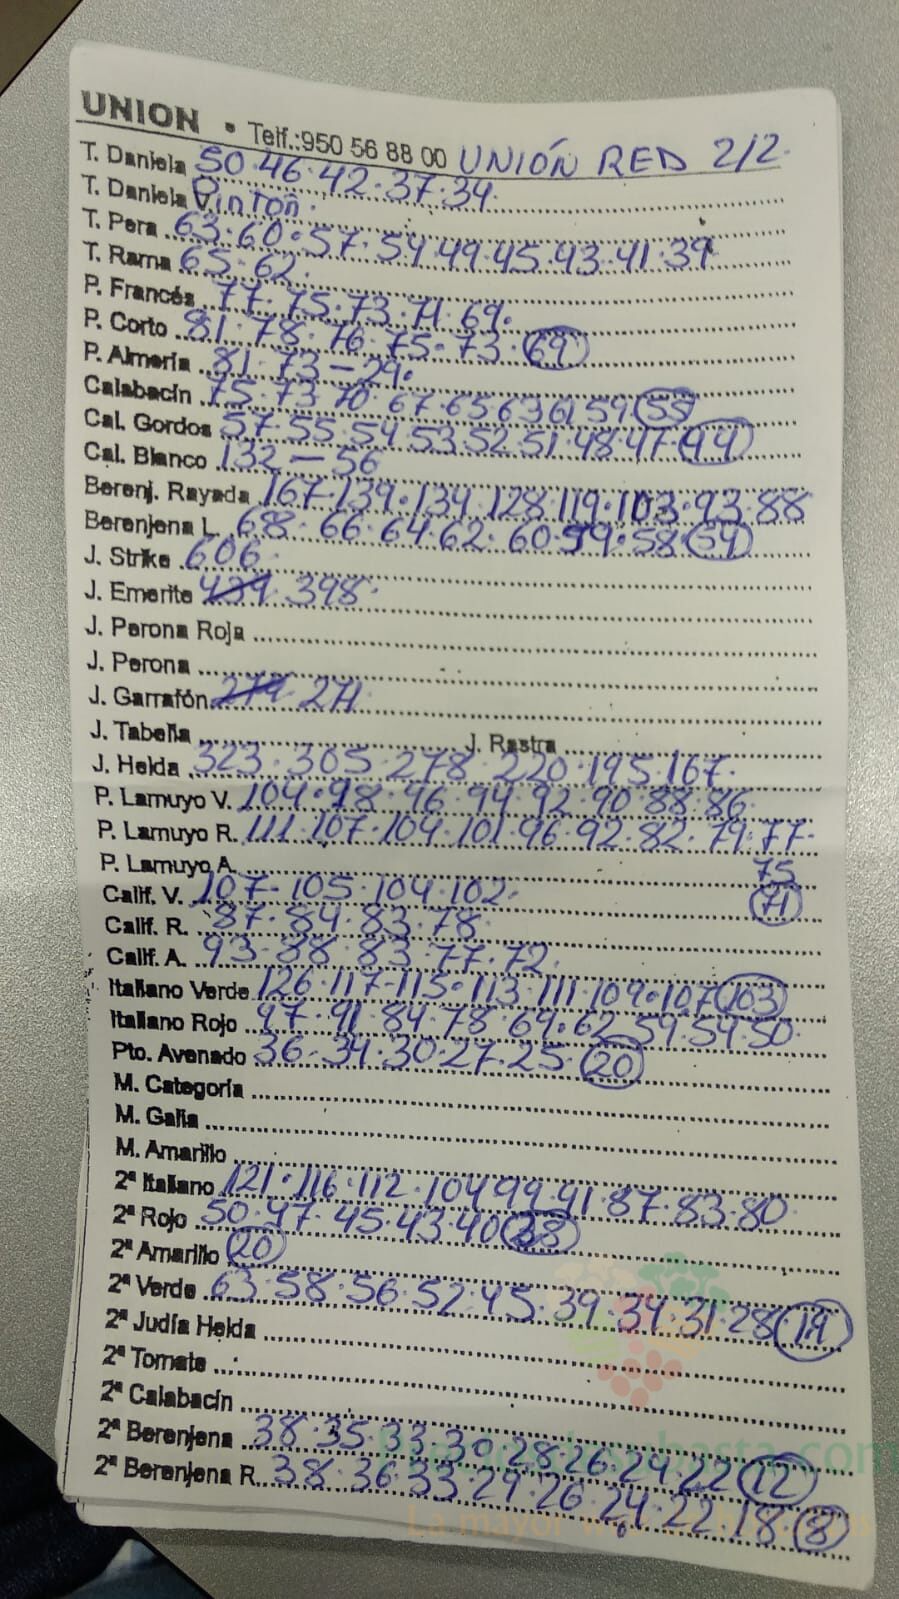 UNION • Telf.:950 56 88 00 UNIÓN RED 2/2.
T. Daniela 50·46·42·37·34.
T. Daniela Pinton.
T. Pera 63·60·57·54·49·45·43·41·39
T. Rama 65·62.
P. Francés 77·75·73·71·69.
P. Corto 81·78·76·75·73·(69)
P. Almería 81·73-29.
Calabacín 75·73·70·67·65·63·61·59·(55)
Cal. Gordos 57·55·54·53·52·51·48·47·(44)
Cal. Blanco 132-56
Berenj. Rayada 167-139·134·128·119·103·93·88
Berenjena L. 68·66·64·62·60·59·58·(54)
J. Strike 606.
J. Emerite 439 398.
J. Perona Roja
J. Perona
J. Garrafón 274 271
J. Tabella J. Rastra
J. Helda 323·305·278·220·195·167.
P. Lamuyo V. 104·98·96·94·92·90·88·86
P. Lamuyo R. 111·107·104·101·96·92·82·79·77-
P. Lamuyo A. 75
Calif. V. 107-105·104·102. (71)
Calif. R. 87·84·83·78
Calif. A. 93·88·83·77·72.
Italiano Verde 126·117-115·113·111·109·107(103)
Italiano Rojo 97·91·84·78·69·62·59·54·50.
Pto. Avenado 36·34·30·27·25·(20)
M. Categoría
M. Galia
M. Amarillo
2ª Italiano 121·116·112·104·99·91·87·83·80
2ª Rojo 50·47·45·43·40(38)
2ª Amarillo (20)
2ª Verde 63·58·56·52·45·39·34·31·28(19)
2ª Judía Helda
2ª Tomate
2ª Calabacín
2ª Berenjena 38·35·33·30·28·26·24·22(12)
2ª Berenjena R. 38·36·33·29·26·24·22·18(8)